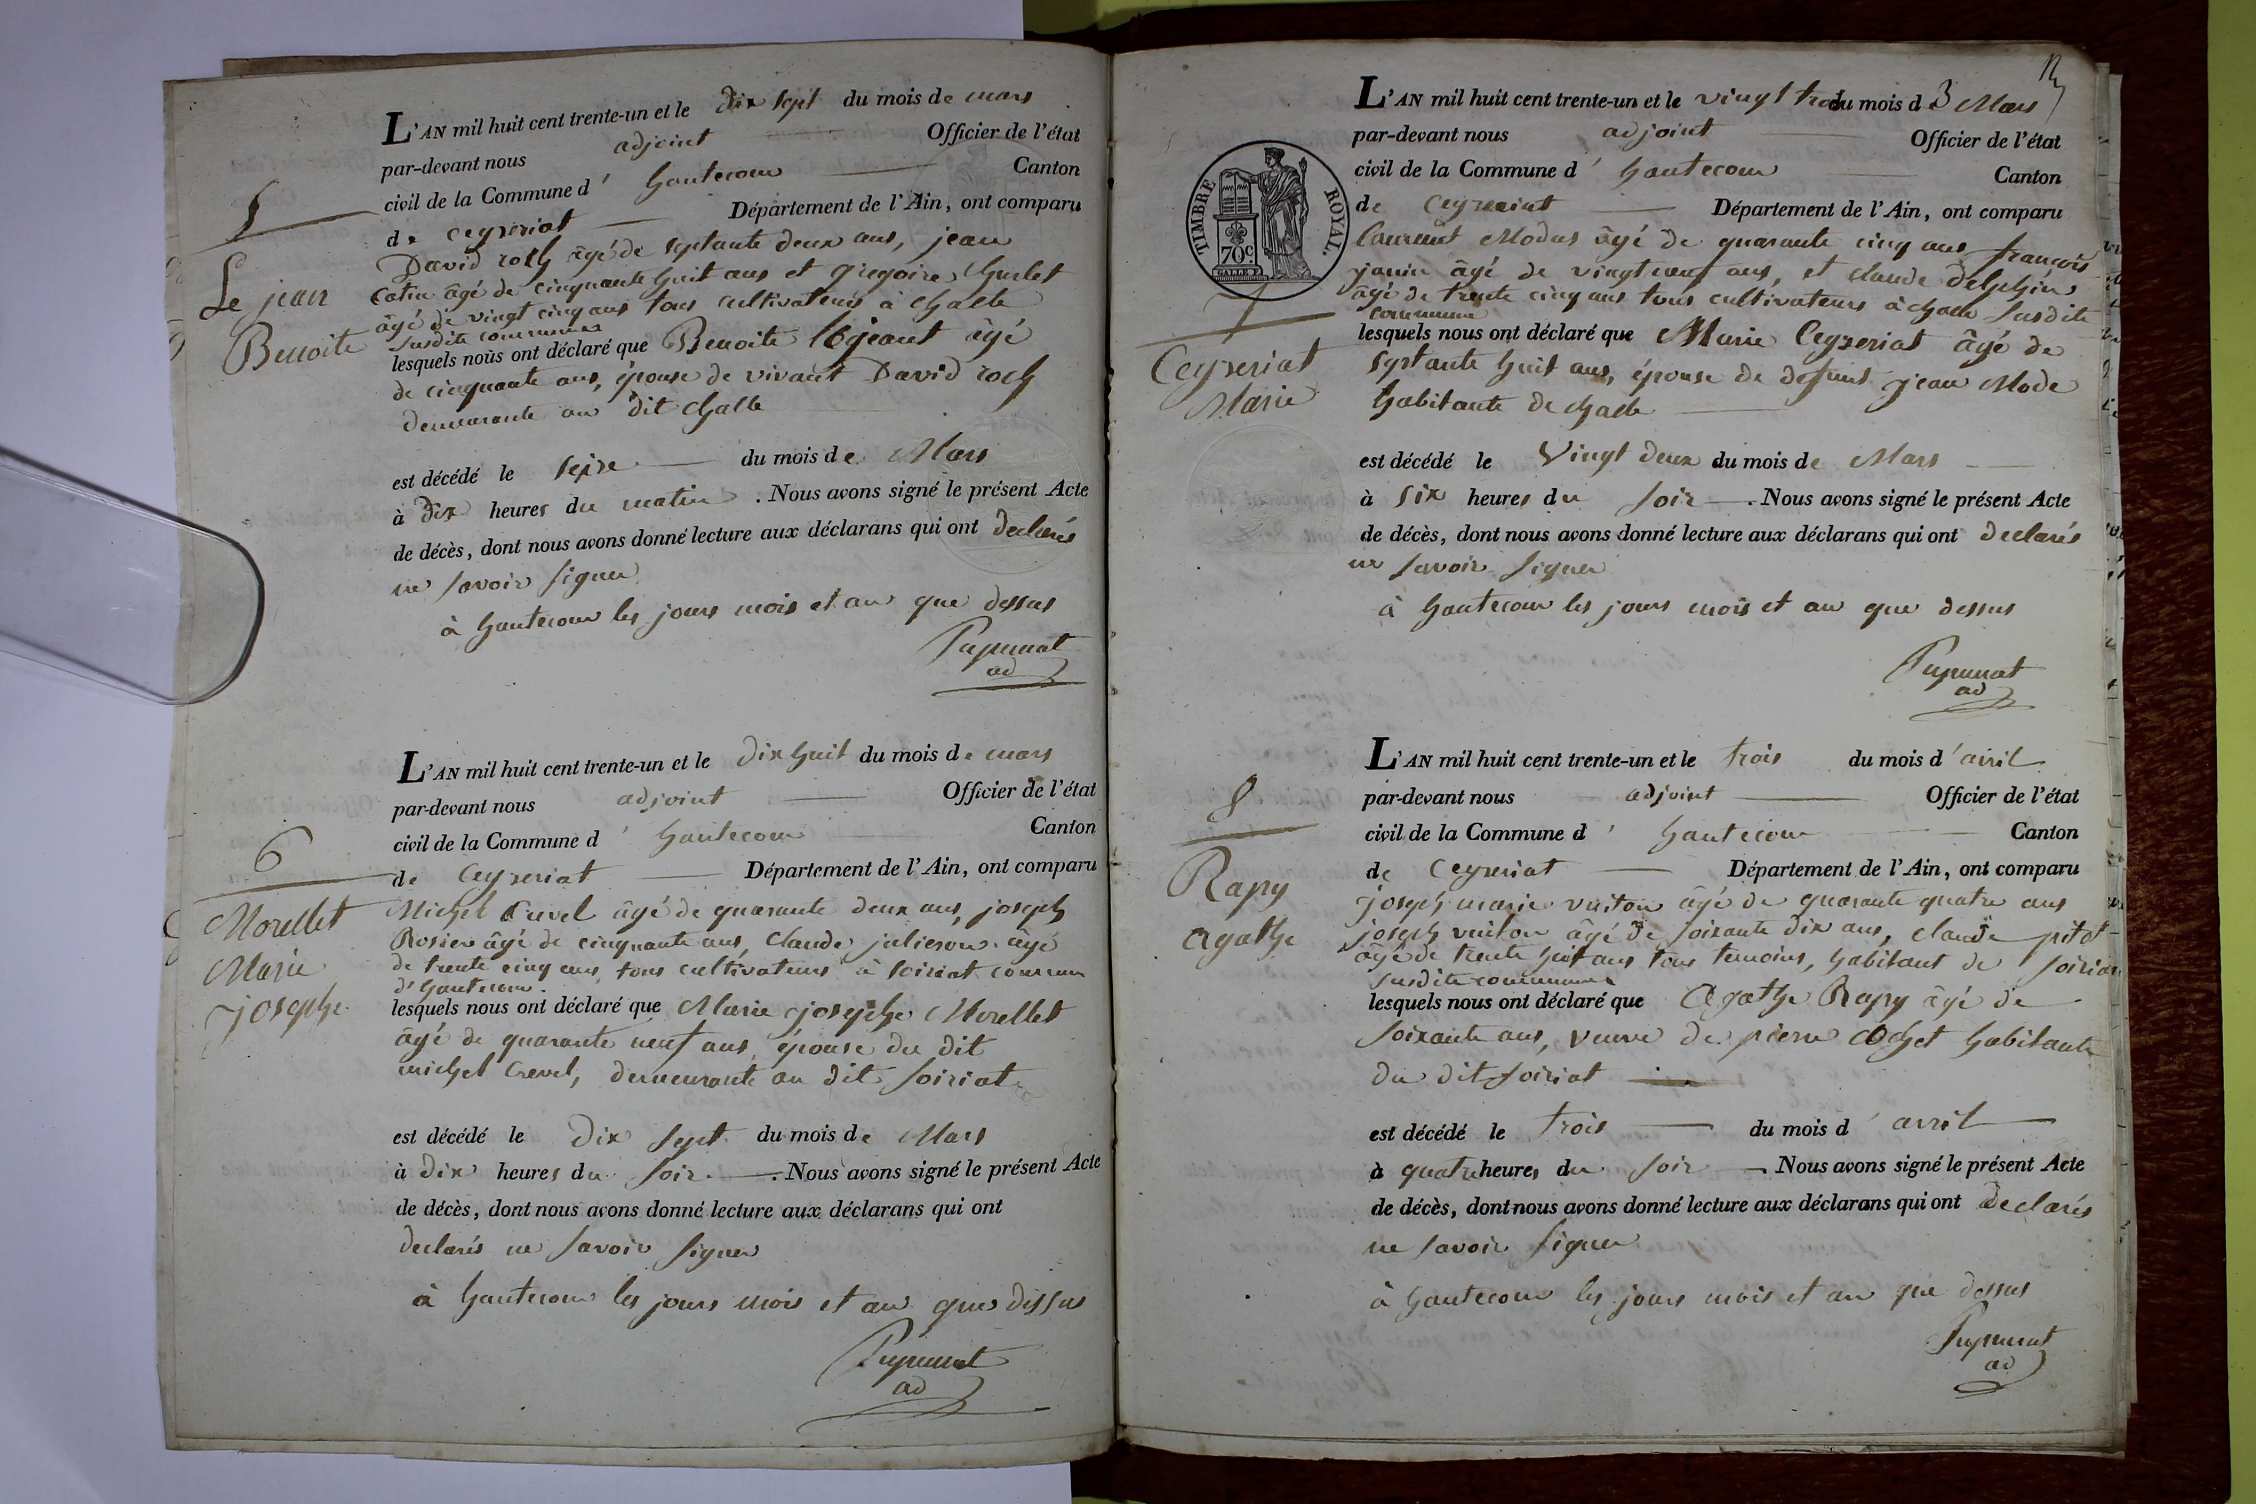 5
Le jean
Benoite
L'AN mil huit cent trente-un et le dix sept du mois de mars
par-devant nous adjoint Officier de l'état
civil de la Commune d' hautecour Canton
de Ceyzeriat Département de l'Ain, ont comparu
David roch âgé de septante deux ans, jean
Catin âgé de cinquante huit ans et gregoire
âgé de vingt cinq ans tous cultivateurs à challe
susdite commune
lesquels nous ont déclaré que Benoite lejeant âgé
de cinquante ans, épouse de vivant David roch
demeurante au dit challe
est décédé le seize du mois de Mars
à dix heures du matin . Nous avons signé le présent Acte
de décès, dont nous avons donné lecture aux déclarans qui ont declarés
ne savoir signer
à hautecour les jours mois et an que dessus
ad
6
Morellet
Marie
josephe
L'AN mil huit cent trente-un et le dix huit du mois de mars
par-devant nous adjoint Officier de l'état
civil de la Commune d' hautecour Canton
de Ceyzeriat Département de l'Ain, ont comparu
Michel Cuvel âgé de quarante deux ans, joseph
Rosier âgé de cinquante ans, Claude âgé
de trente cinq ans tous cultivateurs à soiriat commune
d'hautecour.
lesquels nous ont déclaré que Marie josephe Morellet
âgé de quarante neuf ans, épouse du dit
michel Crevel, demeurante au dit soiriat
est décédé le Dix sept du mois de Mars
à dix heures du soir . Nous avons signé le présent Acte
de décès, dont nous avons donné lecture aux déclarans qui ont
declarés ne savoir signer
à hautecour les jours mois et an que dessus
ad
12
TIMBRE ROYAL.
70c.
7
Ceyzeriat
Marie
L'AN mil huit cent trente-un et le vingt trois du mois de 3 Mars
par-devant nous adjoint Officier de l'état
civil de la Commune d' hautecour Canton
de Ceyzeriat Département de l'Ain, ont comparu
Laurent Modas âgé de quarante cinq ans françois
janin âgé de vingt neuf ans, et claude delphin
âgé de trente cinq ans tous cultivateurs à challe susdite
commune
lesquels nous ont déclaré que Marie Ceyzeriat âgé de
septante huit ans, épouse de defunt jean Mode
habitante de challe
est décédé le Vingt deux du mois de Mars
à six heures du soir . Nous avons signé le présent Acte
de décès, dont nous avons donné lecture aux déclarans qui ont declarés
ne savoir signer
à hautecour les jours mois et an que dessus
ad
8
Rapy
agathe
L'AN mil huit cent trente-un et le trois du mois d'avril
par-devant nous adjoint Officier de l'état
civil de la Commune d' hautecour Canton
de Ceyzeriat Département de l'Ain, ont comparu
joseph marie vuiton âgé de quarante quatre ans
joseph vuiton âgé de soixante dix ans, claude pitot
âgé de trente huit ans tous temoins, habitant de soiriat
susdite commune
lesquels nous ont déclaré que Agathe Rapy âgé de
soixante ans, veuve de pierre Cochet habitante
du dit soiriat
est décédé le trois du mois d' avril
à quatre heures du soir . Nous avons signé le présent Acte
de décès, dont nous avons donné lecture aux déclarans qui ont declarés
ne savoir signer
à hautecour les jours mois et an que dessus
ad